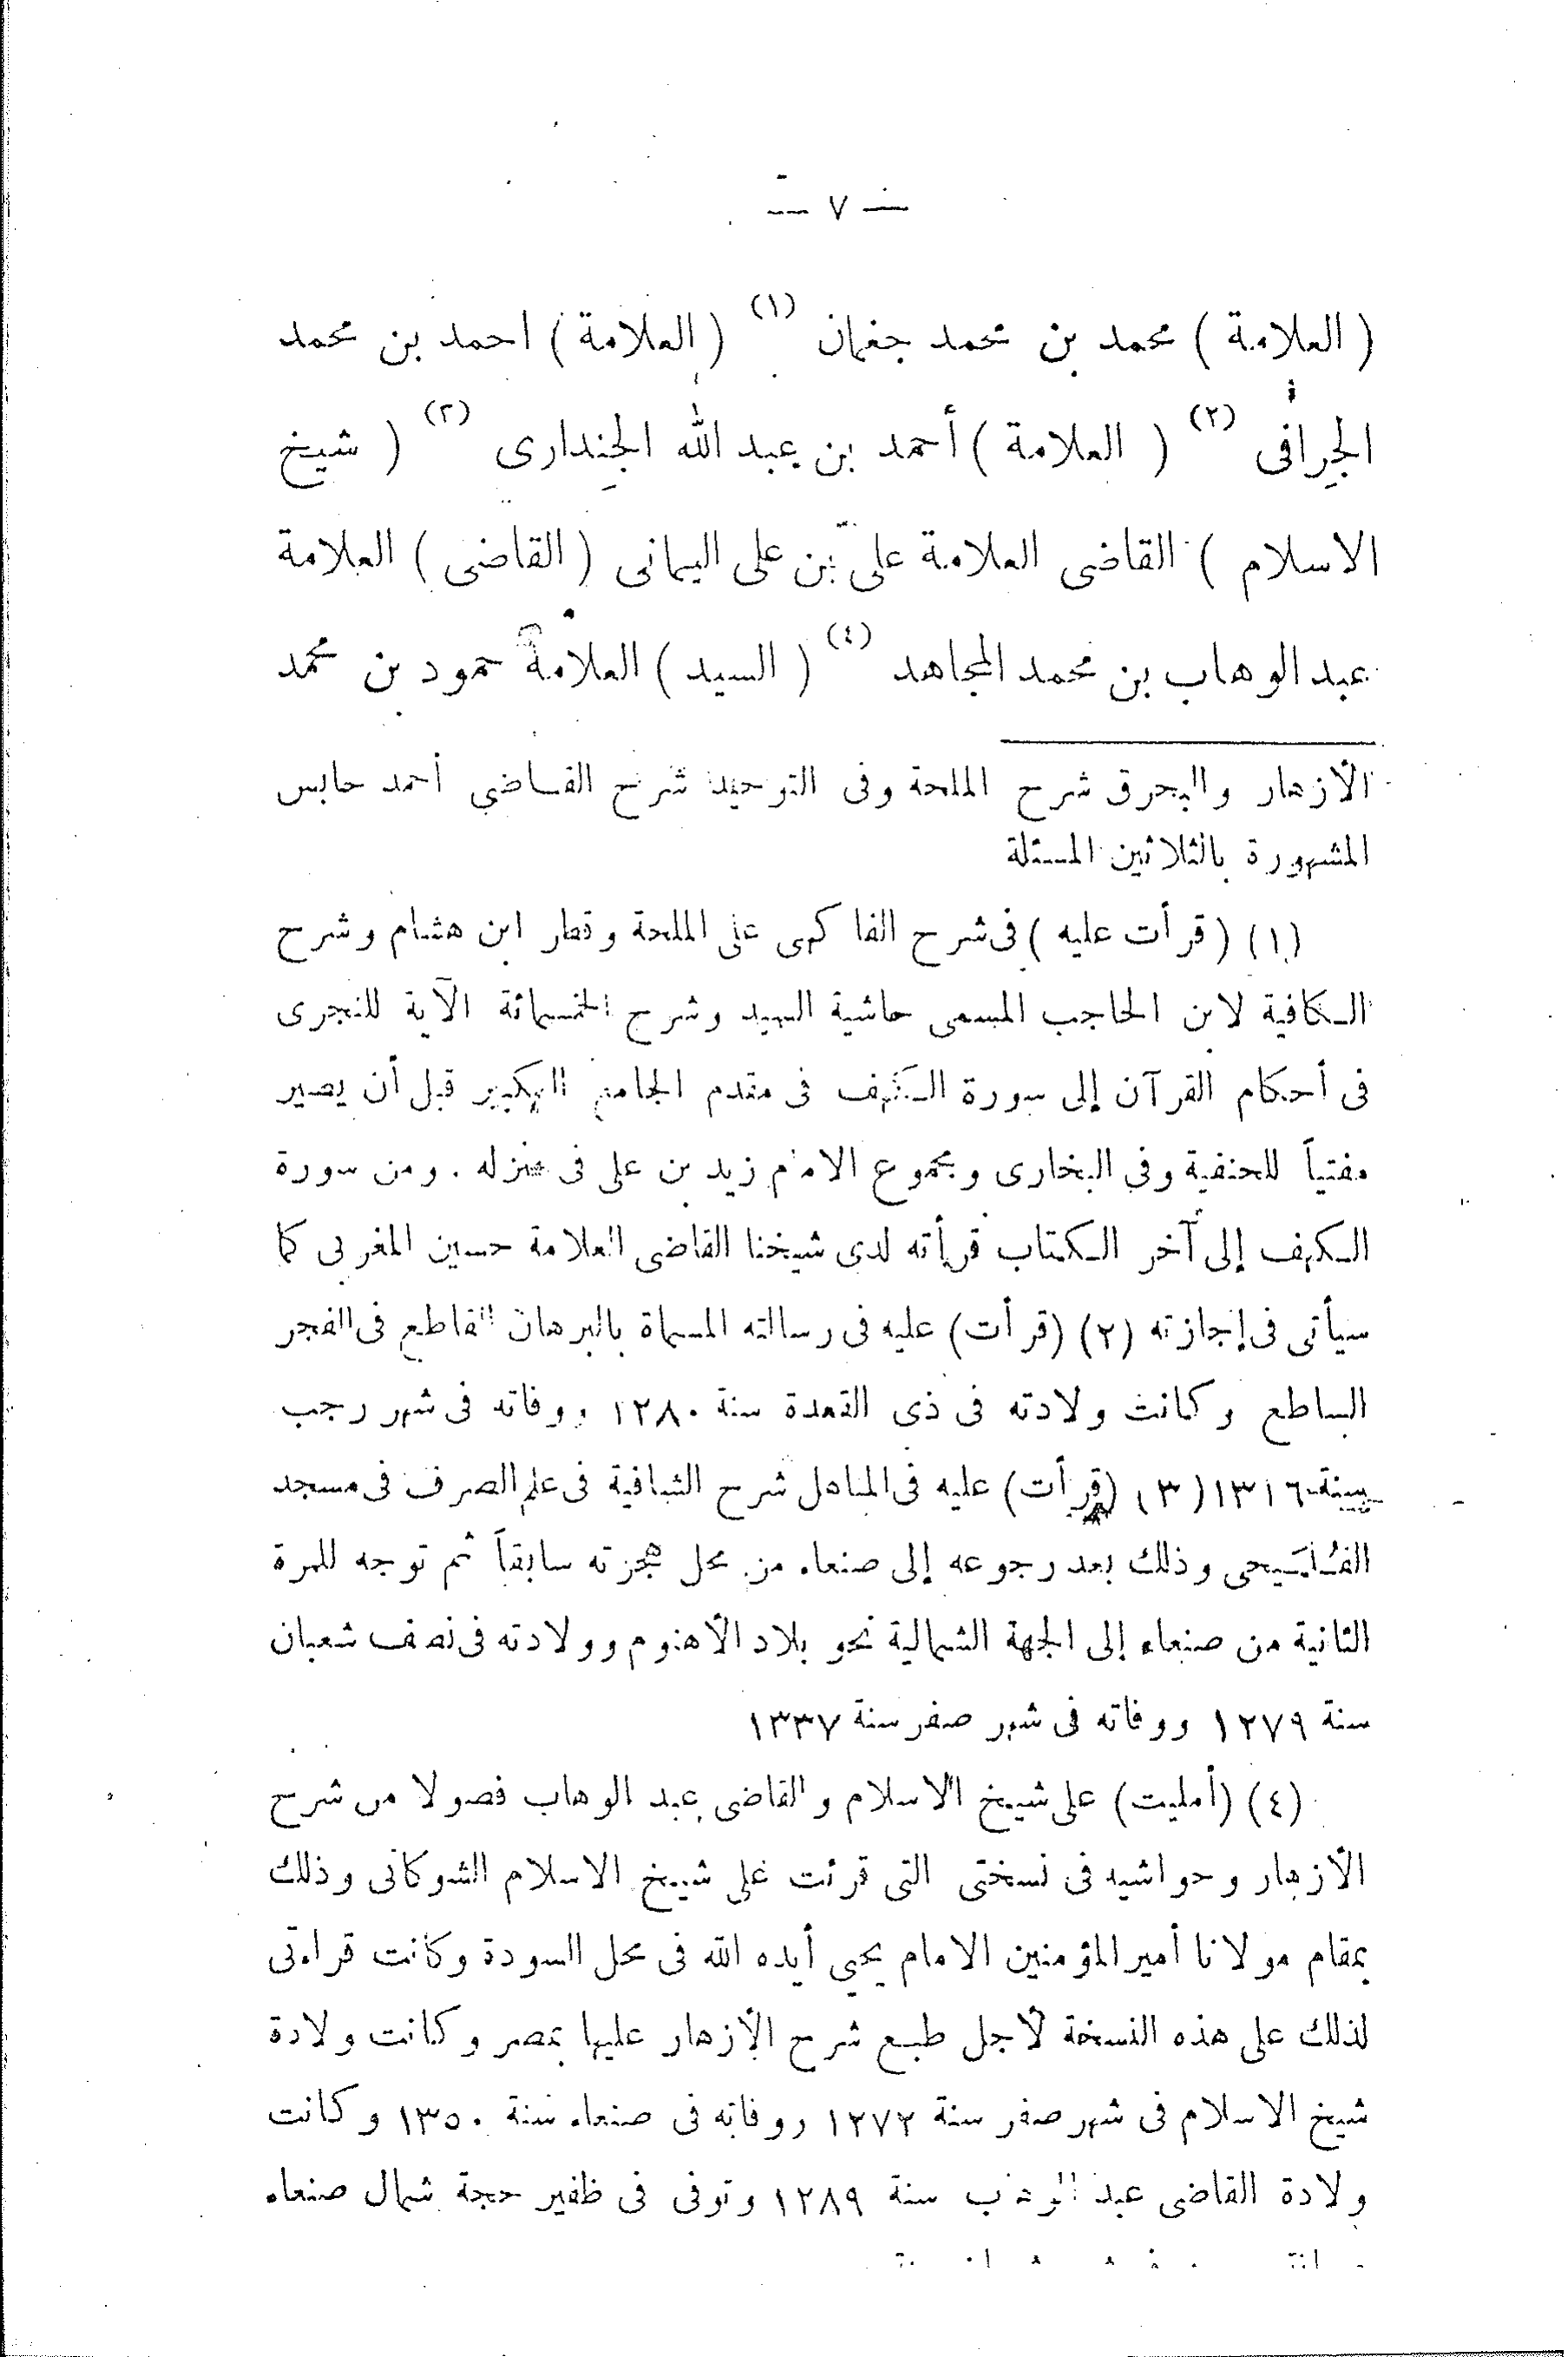 — ٧ —
( العلامة ) محمد بن محمد جغمان (١) ( العلامة ) احمد بن محمد
الجرافى (٢) ( العلامة ) أحمد بن عبد الله الجندارى (٣) ( شيخ
الاسلام ) القاضى العلامة على بن على اليمانى ( القاضى ) العلامة
عبد الوهاب بن محمد المجاهد (٤) ( السيد ) العلامة حمود بن محمد
الأزهار والبحرق شرح الملحة وفى التوحيد شرح القاضي أحمد حابس
المشهورة بالثلاثين المسئلة
(١) (قرأت عليه ) فى شرح الفاكهى على الملحة وقطر ابن هشام وشرح
الكافية لابن الحاجب المسمى حاشية السيد وشرح الخمسمائة الآية للنجرى
فى أحكام القرآن إلى سورة الكهف فى مقدم الجامع الكبير قبل أن يصير
مفتياً للحنفية وفي البخارى ومجموع الامام زيد بن على فى منزله . ومن سورة
الكهف إلى آخر الكتاب قرأته لدى شيخنا القاضى العلامة حسين المغربى كما
سيأتى فى إجازته (٢) (قرأت) عليه فى رسالته المسماة بالبرهان القاطع فى الفجر
الساطع وكانت ولادته فى ذى القعدة سنة ١٢٨٠ ووفاته فى شهر رجب
سنة ١٣١٦ (٣) (قرأت) عليه فى المناهل شرح الشافية فى علم الصرف فى مسجد
الفليحى وذلك بعد رجوعه إلى صنعاء من محل هجرته سابقاً ثم توجه للمرة
الثانية من صنعاء إلى الجهة الشمالية نحو بلاد الأهنوم وولادته فى نصف شعبان
سنة ١٢٧٩ ووفاته فى شهر صفر سنة ١٣٣٧
(٤) (أمليت) على شيخ الاسلام والقاضى عبد الوهاب فصولا من شرح
الأزهار وحواشيه فى نسختى التى قرئت على شيخ الاسلام الشوكانى وذلك
بمقام مولانا أمير المؤمنين الامام يحيى أيده الله فى محل السودة وكانت قراءتى
لذلك على هذه النسخة لأجل طبع شرح الأزهار عليها بمصر وكانت ولادة
شيخ الاسلام فى شهر صفر سنة ١٢٧٢ ووفاته فى صنعاء سنة ١٣٥٠ وكانت
ولادة القاضى عبد الوهاب سنة ١٢٨٩ وتوفى فى ظفير حجة شمال صنعاء